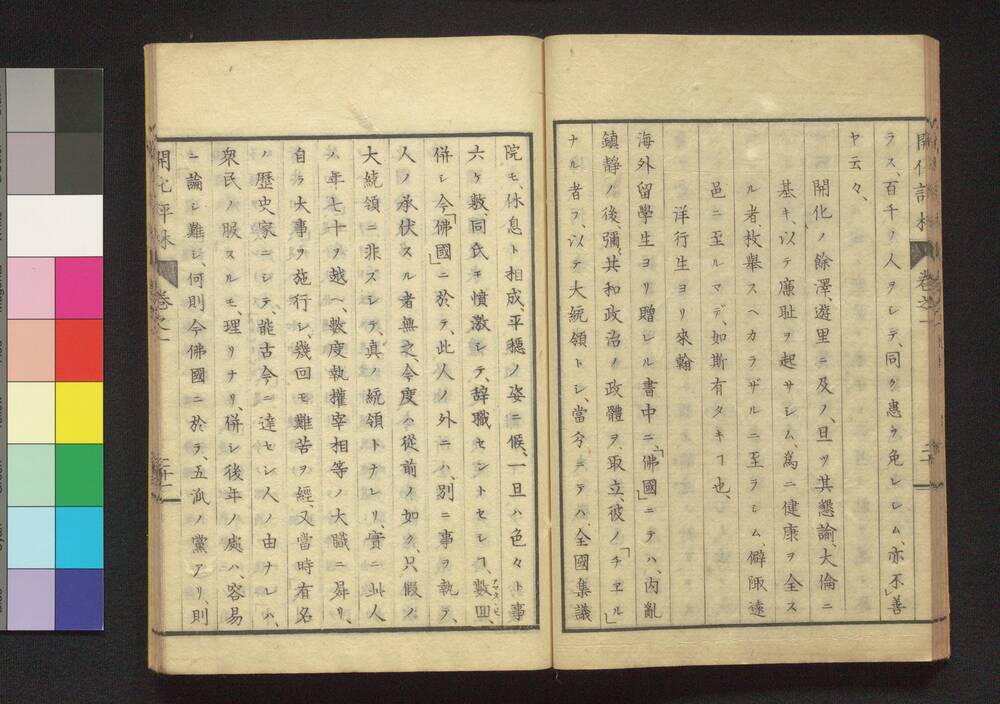 開化評林 卷之一
ラス、百千ノ人ヲシテ、同ク惠ヲ免レシム、亦不善
ヤ云々、
開化ノ餘澤、遊里ニ及ノ、旦ツ其懇諭、大倫ニ
基キ、以テ廉耻ヲ起サシム、為ニ健康ヲ全ス
ル者、枚舉スヘカラザルニ至ラシム、僻陬遠
邑ニ至ルマデ、如斯有タキヿ也、
洋行生ヨリ來翰
海外留學生ヨリ贈レル書中ニ「佛國」ニテハ、内亂
鎮静ノ後、彌共和政治ノ政體ヲ取立、彼ノ「チヱル」
ナル者ヲ、以テ大統領トシ、當今ニテハ、全國集議
院モ、休息ト相成、平穏ノ姿ニ候、一旦ハ色々ト事
六ケ敷、同氏モ憤激シテ、辞職セントセシヿ、數囬、
併シ今「佛國」ニ於テ、此人ノ外ニハ、別ニ事ヲ執テ、
人ノ承伏スル者無之、今度ハ從前ノ如ク、只假ノ
大統領ニ非ズシテ、真ノ統領トナレリ、實ニ此人
ノ年七十ヲ越ヘ、數度執權宰相等ノ大職ニ昇リ、
自ラ大事ヲ施行シ、幾回モ難苦ヲ經、又當時有名
ノ歴史家ニシテ、能古今ニ達セシ人ノ由ナレハ、
衆民ノ服スルモ、理リナリ、併シ後年ノ處ハ、容易
ニ論シ難シ、何則今佛國ニ於テ、五派ノ黨アリ、則
開化評林 卷之一